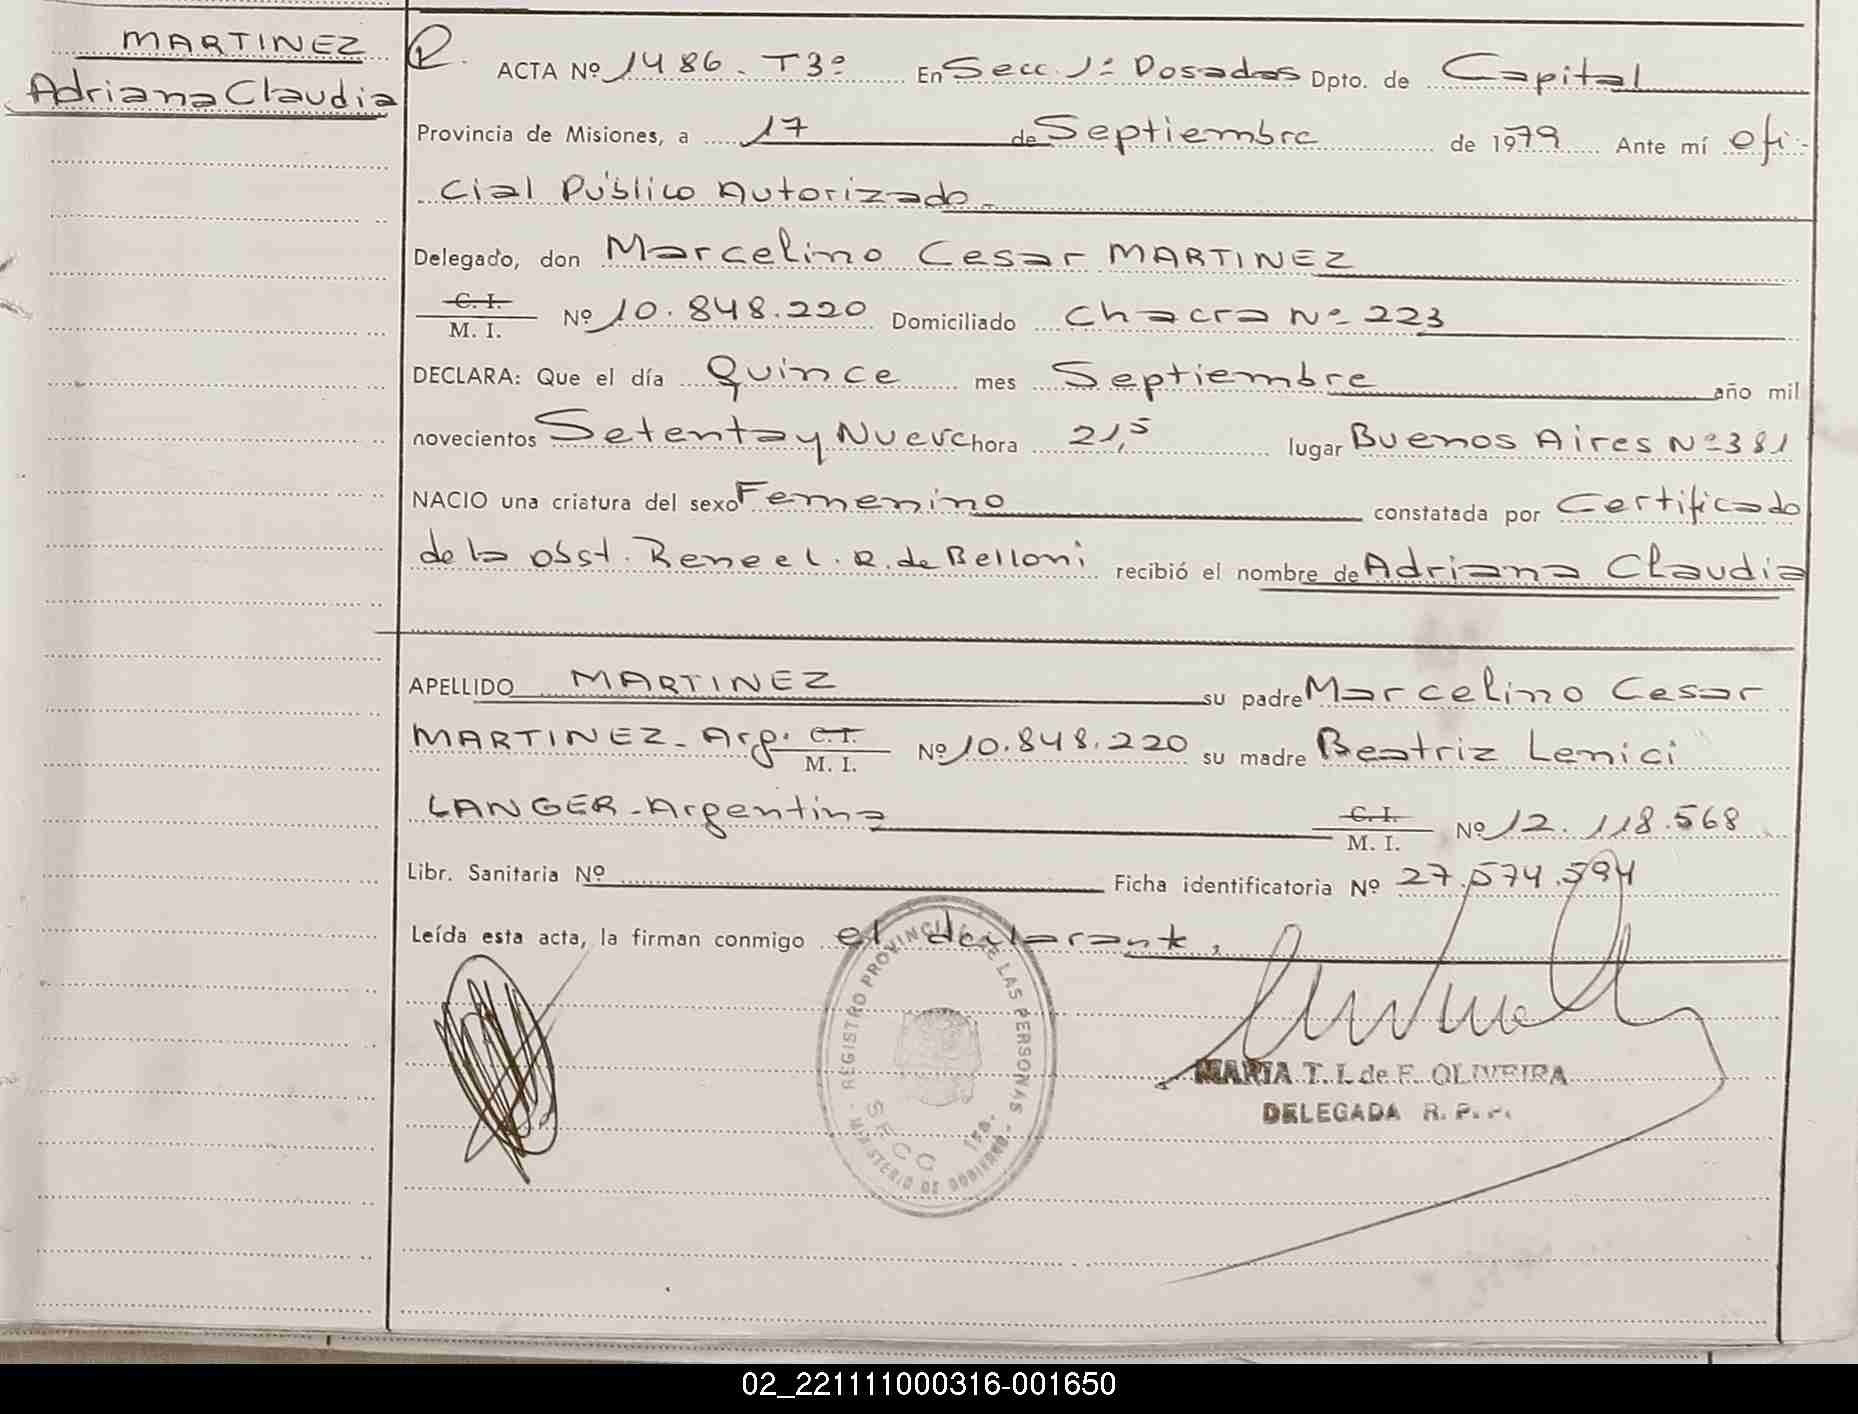 MARTINEZ
Adriana Claudia
ACTA Nº 1486 - T3º En Secc. 1ª Posadas Dpto. de Capital
Provincia de Misiones, a 17 de Septiembre de 1979 Ante mí ofi-
cial Público Autorizado.
Delegado, don Marcelino Cesar MARTINEZ
C. I.
M. I. Nº 10.848.220 Domiciliado Chacra Nº 223
DECLARA: Que el día Quince mes Septiembre año mil
novecientos Setenta y Nueve hora 21,5 lugar Buenos Aires Nº 381
NACIO una criatura del sexo Femenino constatada por Certificado
de la obst. Renee L. R. de Belloni recibió el nombre de Adriana Claudia
APELLIDO MARTINEZ su padre Marcelino Cesar
MARTINEZ - Arg. C. I. M. I. Nº 10.848.220 su madre Beatriz Lenici
LANGER - Argentina C. I. M. I. Nº 12.118.568
Libr. Sanitaria Nº Ficha identificatoria Nº 27.574.594
Leída esta acta, la firman conmigo el declarante,
REGISTRO PROVINCIAL DE LAS PERSONAS
SECC 1RA.
MINISTERIO DE GOBIERNO
MARIA T. I. de F. OLIVEIRA
DELEGADA R. P. P.
02_221111000316-001650